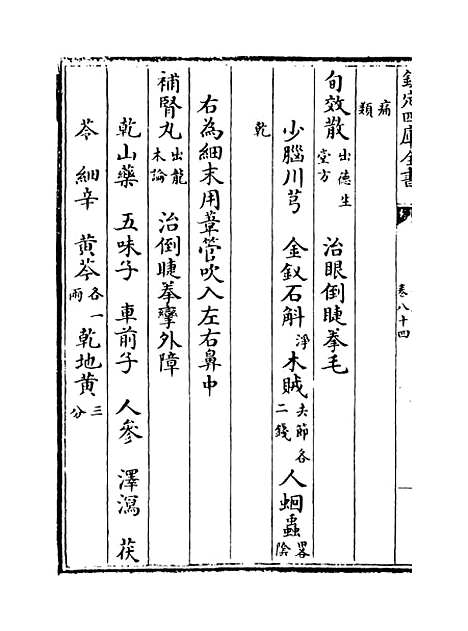 欽定四庫全書 卷八十四
痛類
旬效散 出德生堂方 治眼倒睫拳毛
少腦川芎 金釵石斛 淨 木賊 去節各二錢 人蛔蟲 畧陰
乾
右為細末用葦管吹入左右鼻中
補腎丸 出龍木論 治倒睫拳攣外障
乾山藥 五味子 車前子 人參 澤瀉 茯
苓 細辛 黄芩 各一兩 乾地黄 三分